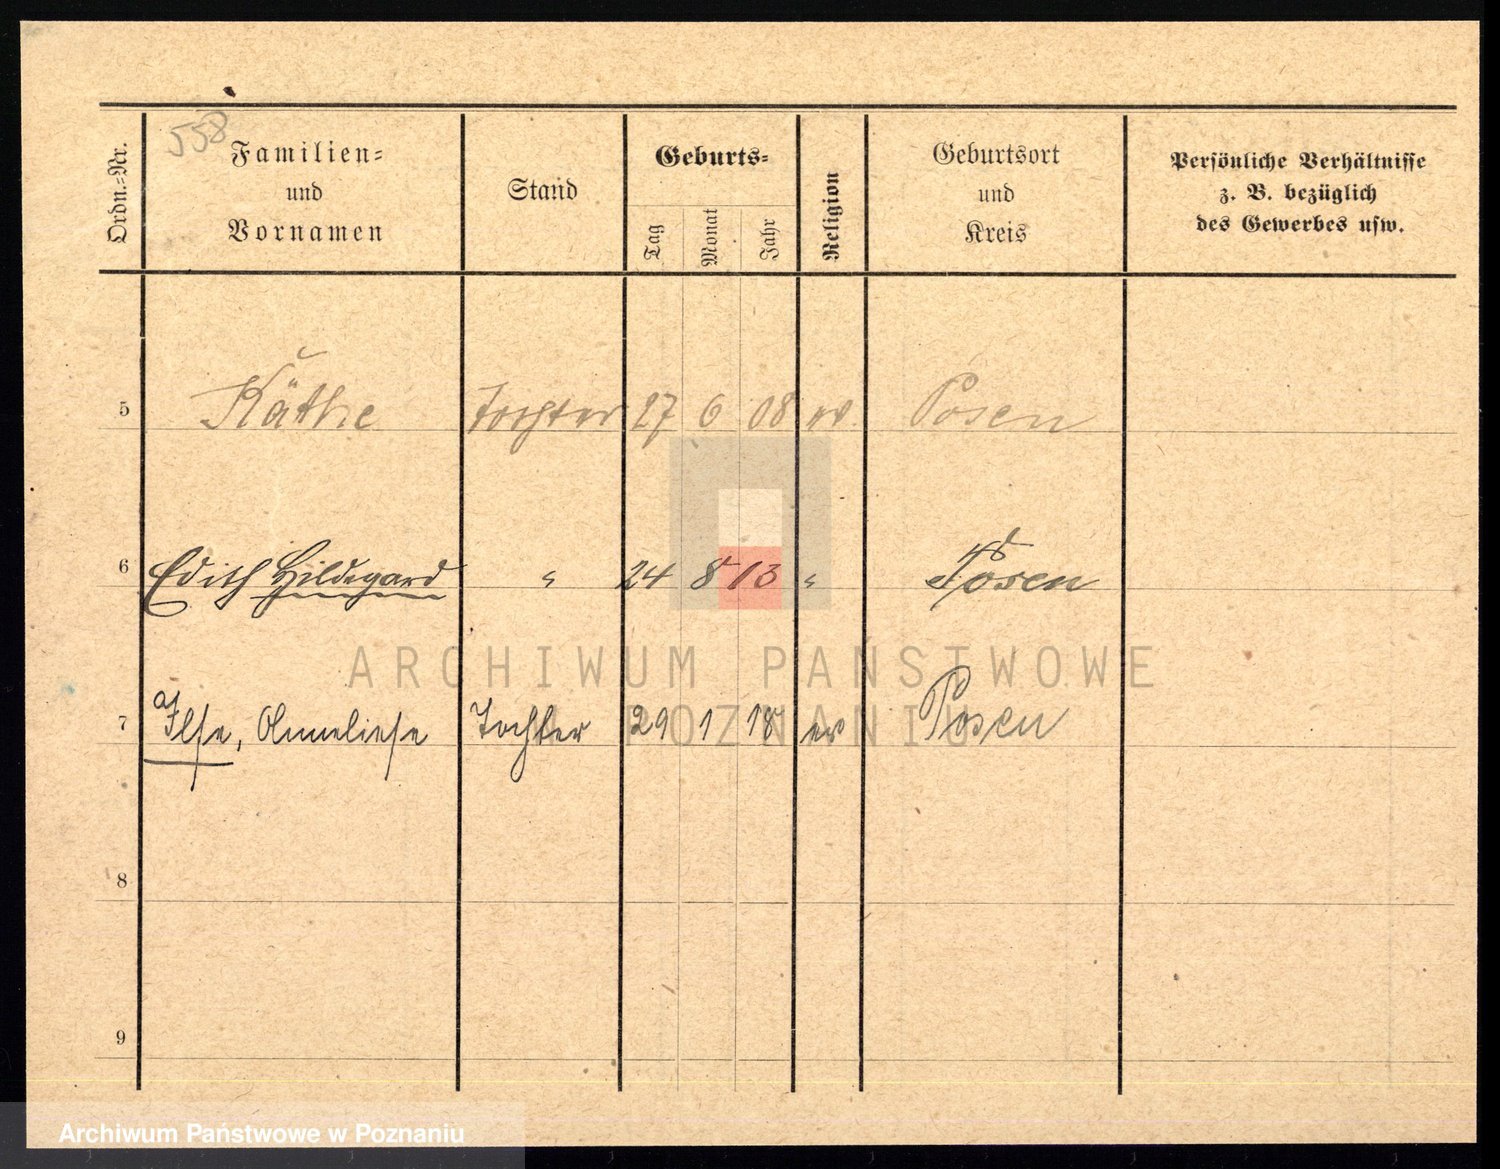 558
Ordn.-Nr.
Familien-
und
Vornamen
Stand
Geburts-
Tag
Monat
Jahr
Religion
Geburtsort
und
Kreis
Persönliche Verhältnisse
z. B. bezüglich
des Gewerbes usw.
5 Käthe Tochter 27 6 08 ev. Posen
6 Edith Hildegard " 24 8 13 " Posen
ARCHIWUM PAŃSTWOWE
7 Ilse, Anneliese Tochter 29 1 18 ev Posen
W POZNANIU
8
9
Archiwum Państwowe w Poznaniu